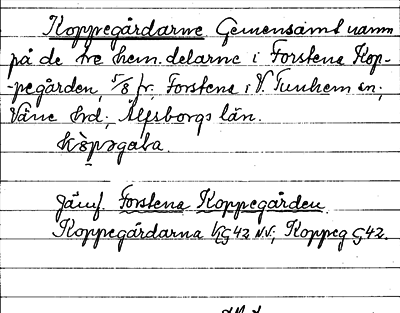 Koppegårdarne Gemensamt namn
på de tre hem. delarne i Forstena Kop-
-pegården, 5/8 fr, Forstena i V. Tunhem sn;
Väne hd; Älfsborgs län.
Jämf. Forstena Koppegården.
Koppegårdarna G42 NV; Koppeg G42.